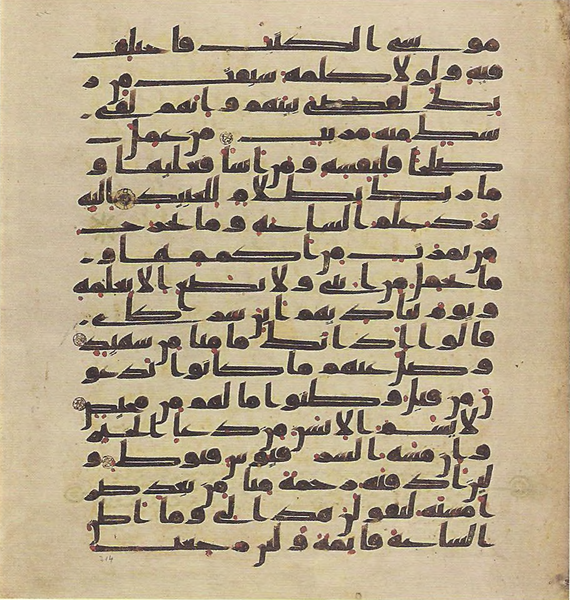 موسى الكتب فاختلف
فيه ولولا كلمة سبقت من ر
بك لقضى بينهم وانهم لفى
شك منه مريب من عمل
صلحا فلنفسه ومن اسا فعليها و
ما ربك بظلام للعبيد اليه
يرد علم الساعة وما تخرج
من ثمرت من اكمامها و
ما تحمل من انثى ولا تضع الا بعلمه
ويوم يناديهم اين شركاى
قالوا اذنك ما منا من شهيد
وضل عنهم ما كانوا يدعو
ن من قبل وظنوا ما لهم من محيص
لا يسم الانسن من دعا الخير
وان مسه الشر فيوس قنوط و
لين اذقنه رحمة منا من بعد ضر
ا مسته ليقولن هذا لى وما اظن
الساعة قايمة ولين رجعت